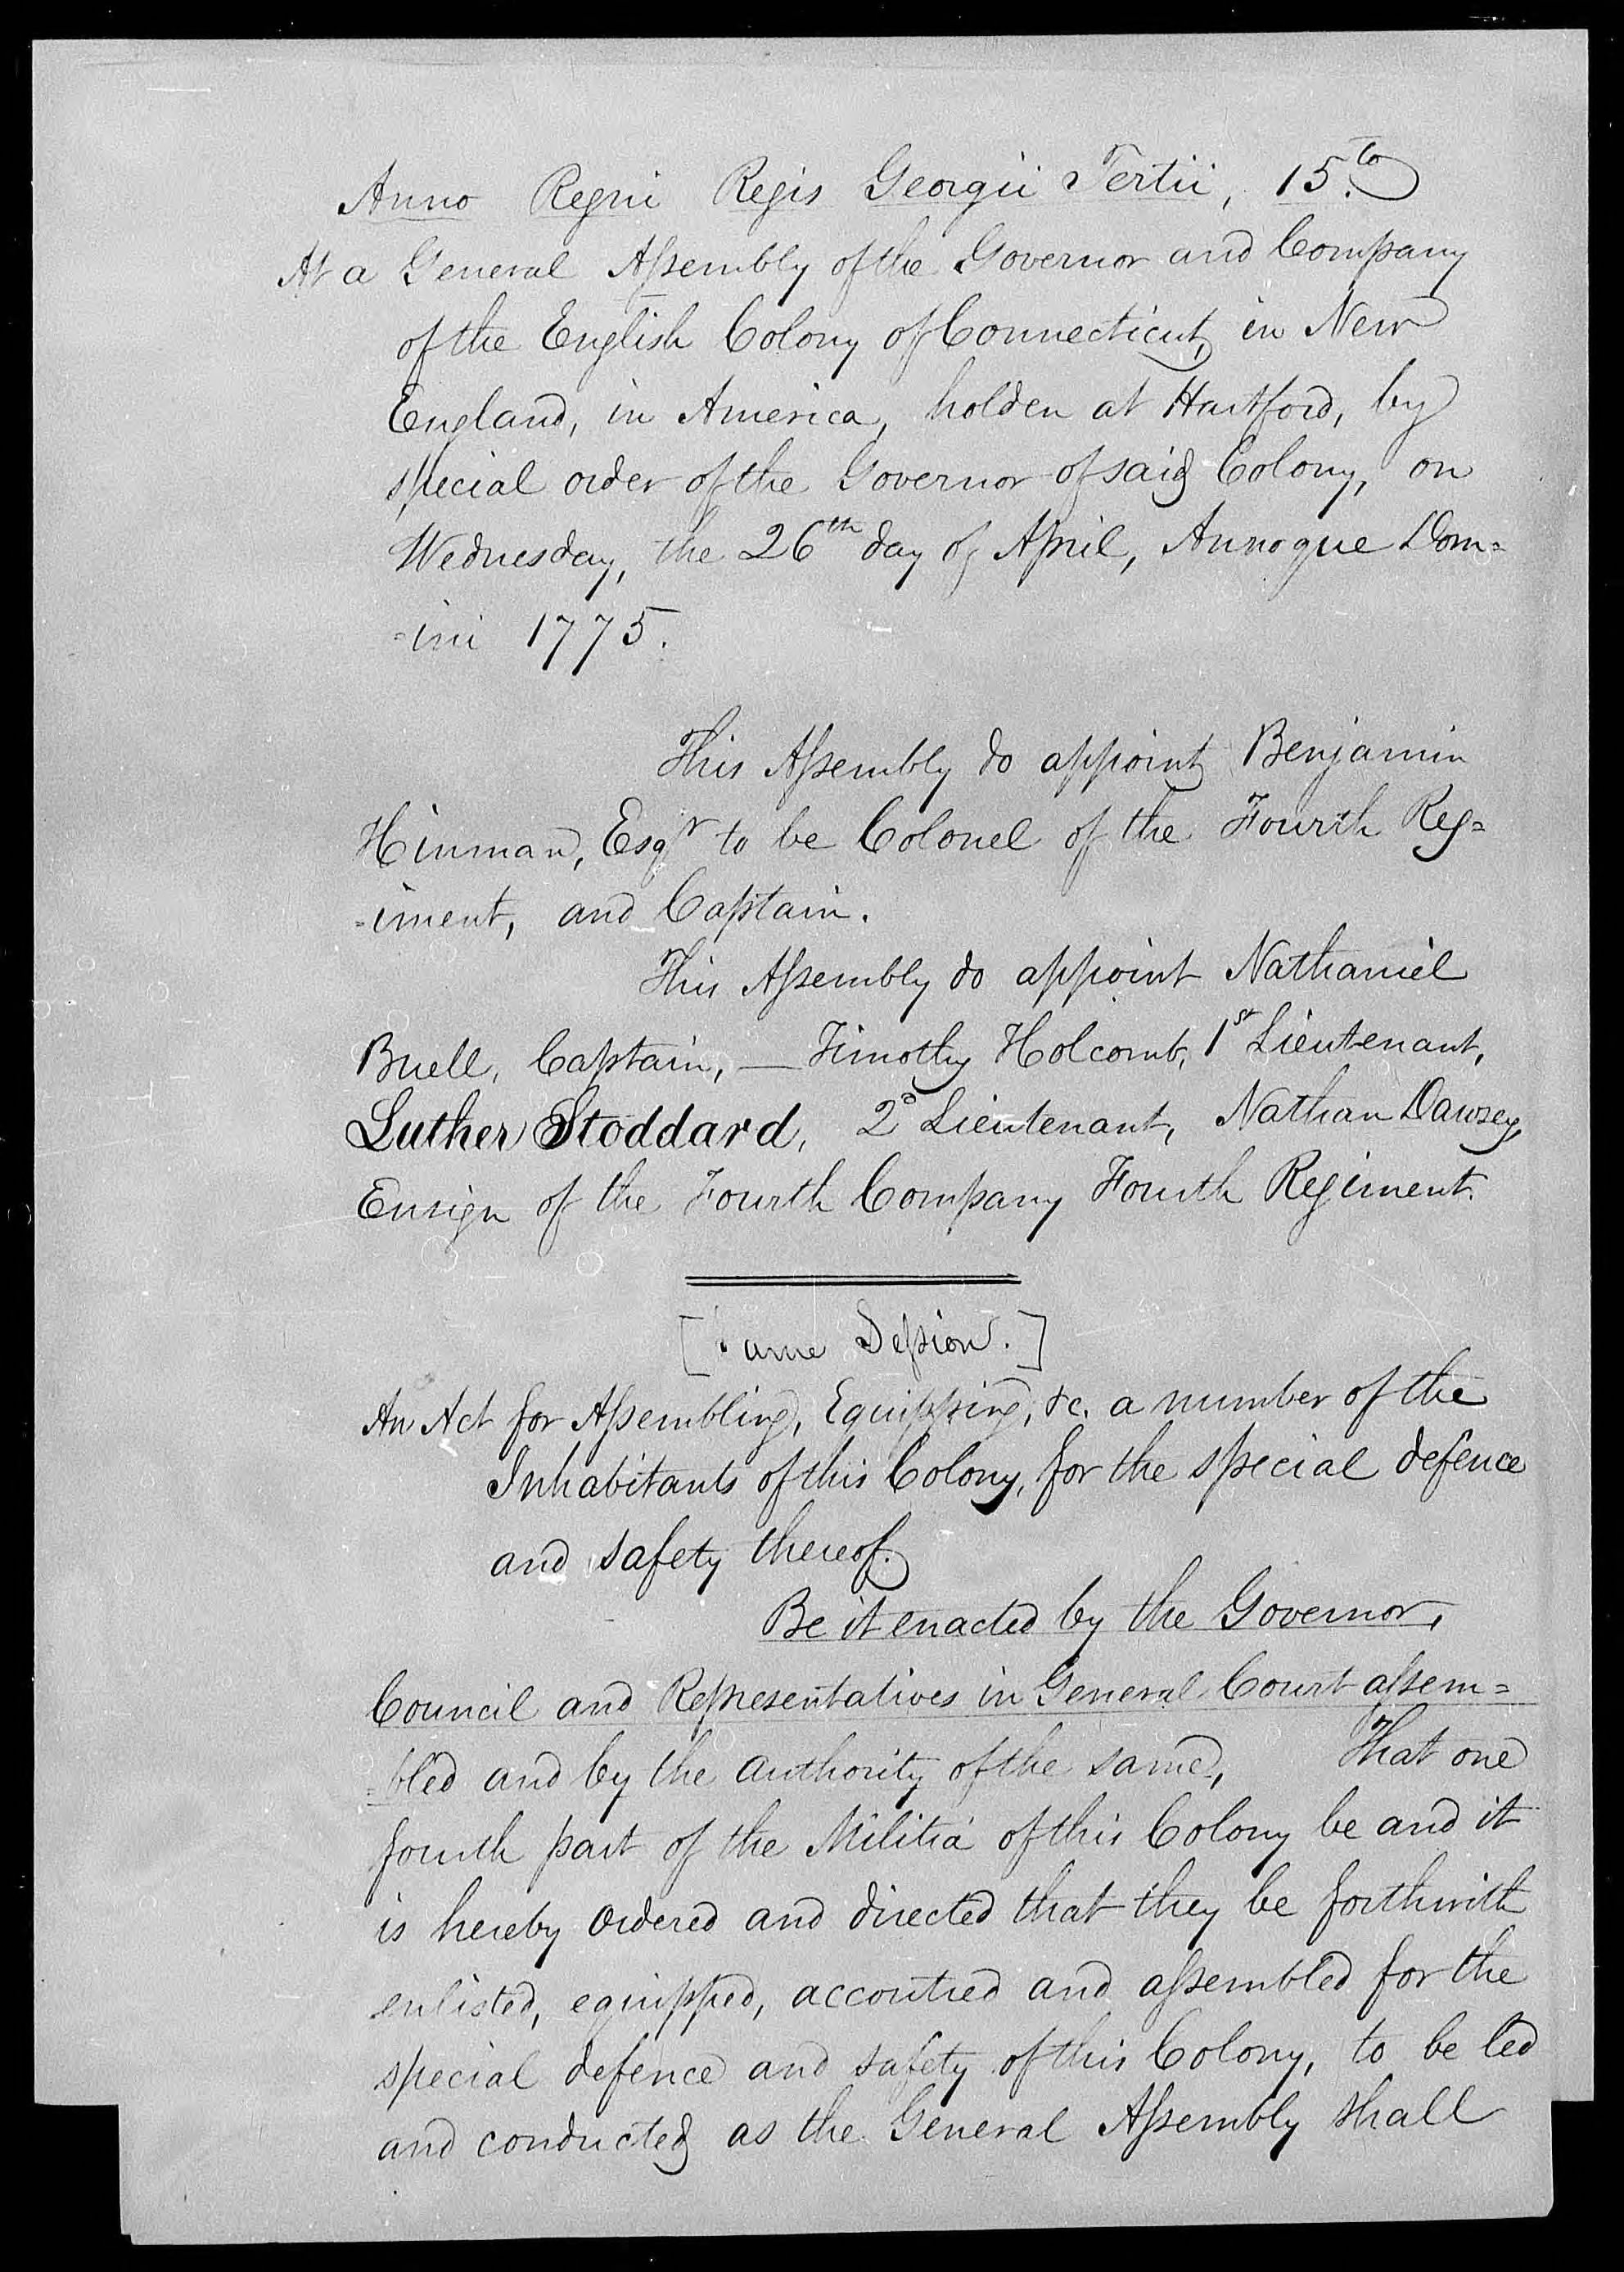 Anno Regni Regis Georgii Tertii, 15.to
At a General Assembly of the Governor and Company
of the English Colony of Connecticut, in New
England, in America, holden at Hartford, by
special order of the Governor of said Colony, on
Wednesday, the 26th day of April, Annoque Dom=
=ini 1775.
This Assembly do appoint Benjamin
Hinman, Esqr to be Colonel of the Fourth Reg=
=iment, and Captain.
This Assembly do appoint Nathaniel
Buell, Captain, — Timothy Holcomb, 1st Lieutenant,
Luther Stoddard, 2d Lieutenant, Nathan Dawsey,
Ensign of the Fourth Company Fourth Regiment.
[Same Session.]
An Act for Assembling, Equipping, &c. a number of the
Inhabitants of this Colony, for the special defence
and safety thereof.
Be it enacted by the Governor,
Council and Representatives in General Court assem=
=bled and by the authority of the same, That one
fourth part of the Militia of this Colony be and it
is hereby ordered and directed that they be forthwith
enlisted, equipped, accoutred and assembled for the
special defence and safety of this Colony, to be led
and conducted as the General Assembly shall